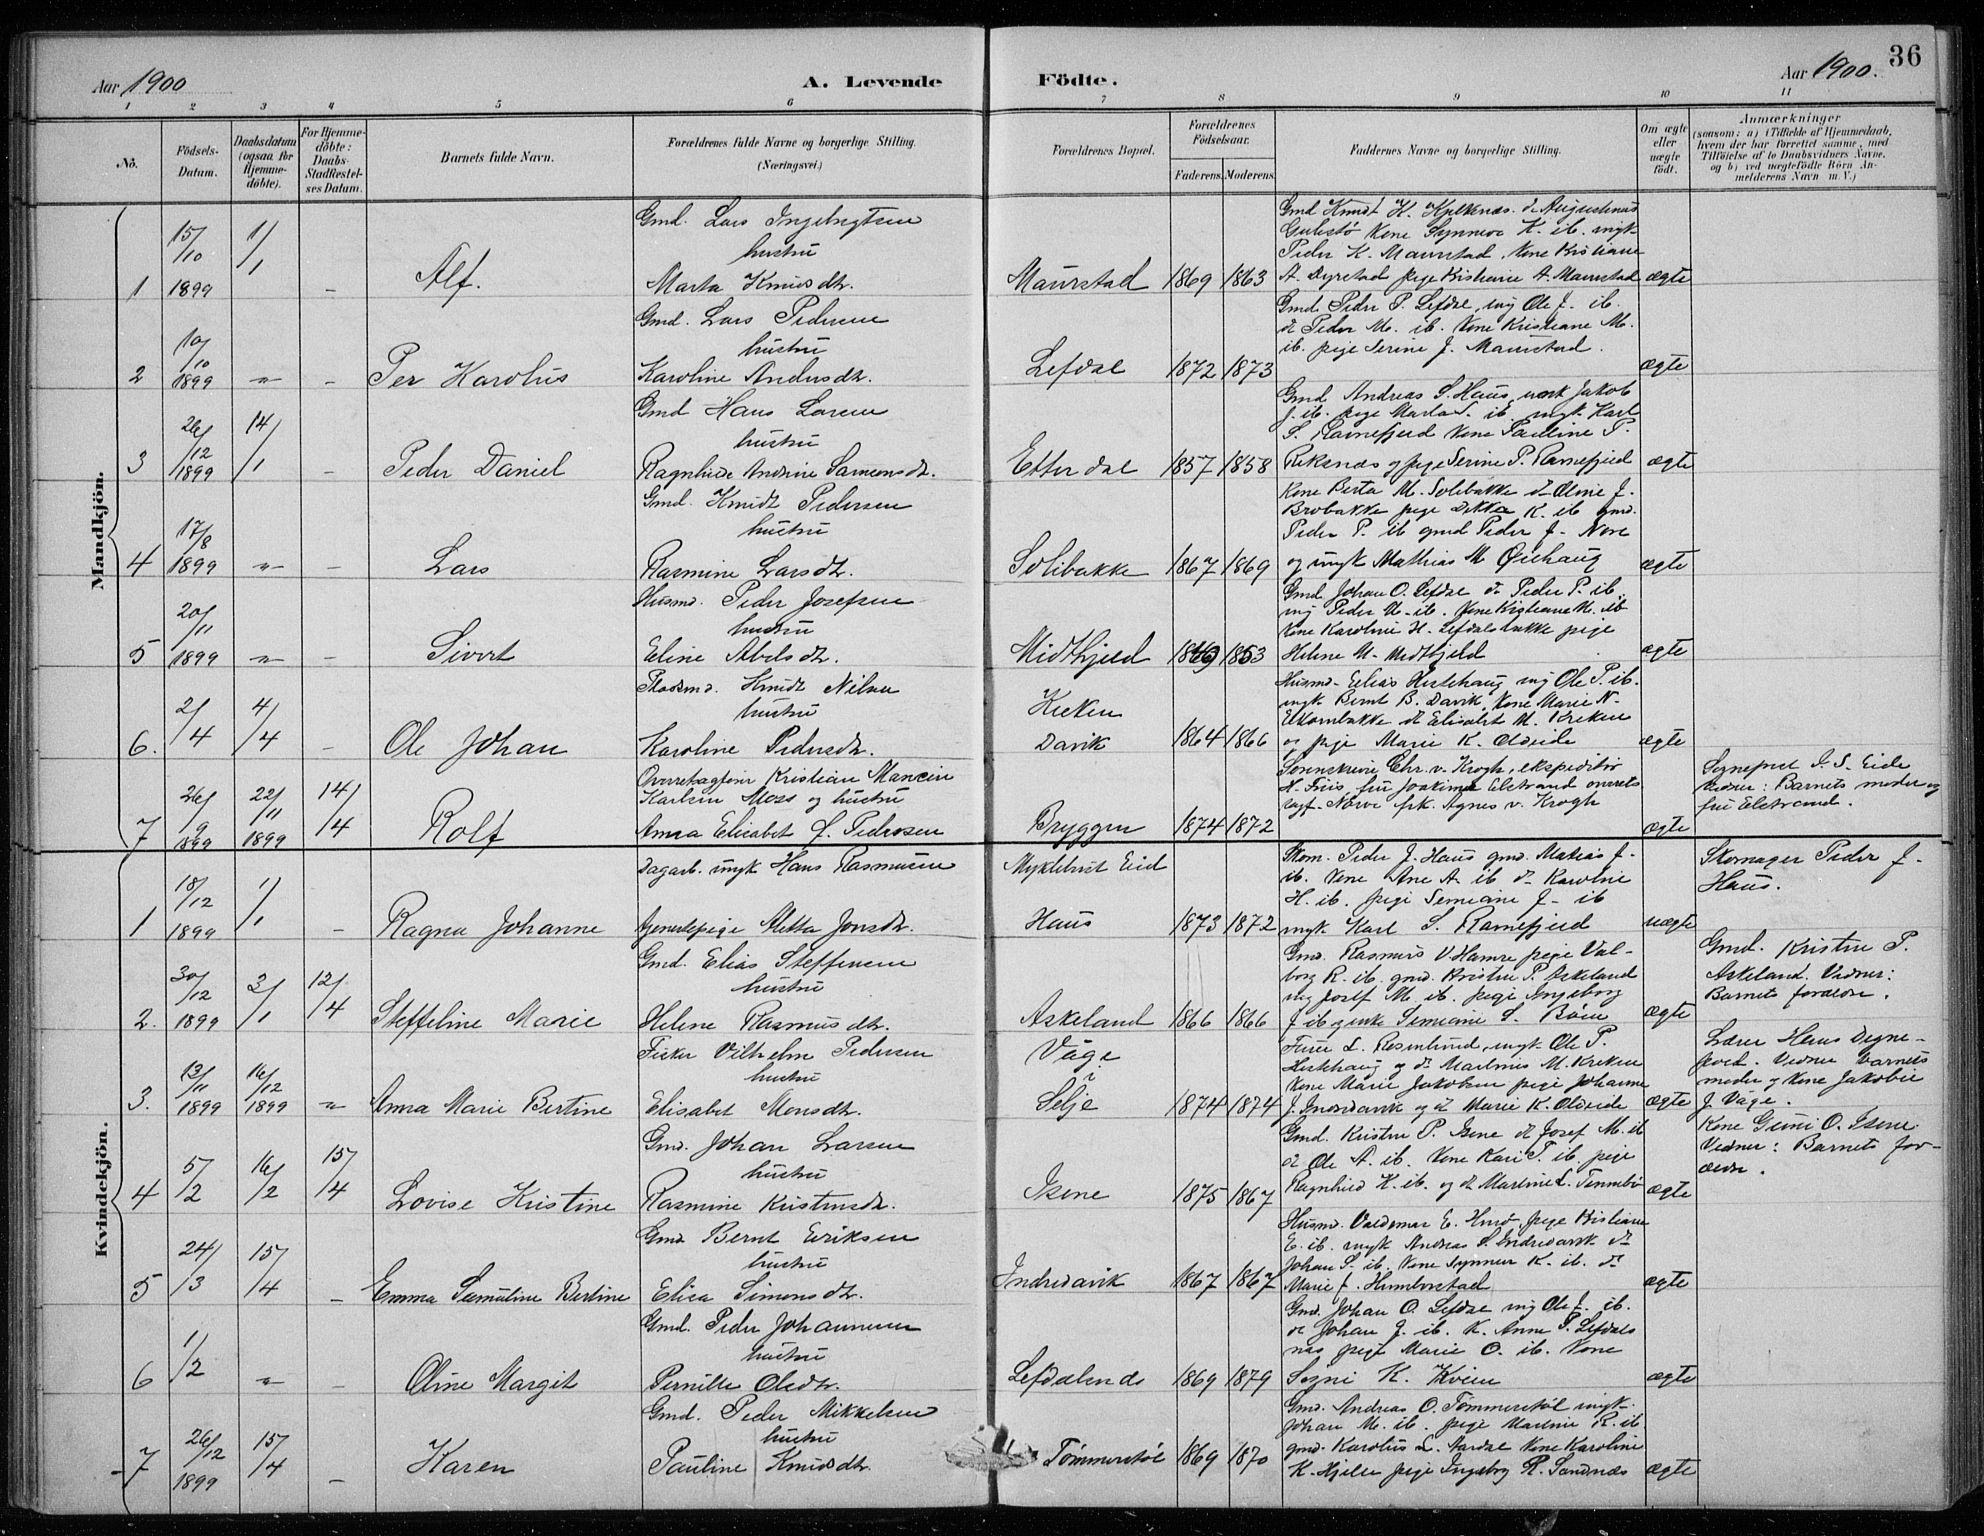 36
Aar 1900
A. Levende Födte.
Aar 1900.
1 2 3 4 5 6 7 8 9 10 11
No.
Födsels-Datum.
Daabsdatum (ogsaa for Hjemme-döbte).
For Hjemme-döbte: Daabs-Stadfæstel-ses Datum.
Barnets fulde Navn.
Forældrenes fulde Navne og borgerlige Stilling. (Næringsvei.)
Forældrenes Bopæl.
Forældrenes Födselsaar.
Faderens. Moderens.
Faddernes Navne og borgerlige Stilling.
Om ægte eller uægte födt.
Anmærkninger
(saasom: a) i Tilfælde af Hjemmedaab, hvem der har forrettet samme, med Tilföielse af to Daabsvidners Navne, og b) ved uægtefödte Börn An-melderens Navn m. V.)
Mandkjön.
Gmd. Lars Ingebrigtsen
hustru
1 15/10 1899 1/1 - Alf. Marta Knudsdtr. Maurstad 1869 1863 ægte
Peder K. Maurstad, Kone Kristiane
A. Dyrstad pige Kristiane A. Maurstad
Gmd. Lars Pedersen
hustru
2 10/10 1899 -"- - Per Karolus Karoline Andersdtr. Lefdal 1872 1873 ægte
Gmd Peder P. Lefdal, ung Ole J. ib.
do Peder M. ib. Kone Kristiane M.
ib. pige Serine J. Maurstad.
Gmd Hans Larsen
hustru
3 26/12 1899 14/1 - Peder Daniel Ragnhilde Andrine Samsonsdtr. Etterdal 1857 1858 ægte
Gmd Andreas S. Haus, umk Jakob
J. ib. pige Marta S. ib. ungk. Karl
S. Ramefjeld Kone Pauline P.
Reksnæs og pige Serine P. Ramefjeld
Gmd. Knudt Pedersen
hustru
4 17/8 1899 -"- - Lars Rasmine Larsdtr. Solibakke 1867 1869 ægte
Kone Berta M. Solibakke do Oline J.
Brobakke pige K. ib gmd.
Peder P. ib gmd Peder J. Nore
og ungk Mathias M
Husmd. Peder Josefsen
hustru
5 20/11 1899 -"- - Sivert Eline Abelsdtr. Midthjeld 1853 ægte
Gmd Johan O. Lefdal do Peder P. ib.
ung Peder M. ib. Kone Kristiane M. ib
Kone Karoline H. Lefdalsbakke pige
Helene M. Midthjeld
Pladsmd. Knudt Nilsen
hustru
6. 2/4 4/4 - Ole Johan Karoline Pedersdtr. Kreken Davik 1864 1866 ægte
Husmd. Elias Hestehaug ung Ole P. ib.
ungk Bernt B. Davik, Kone Marie N.
do Elisabet M. Kreken
og pige Marie K. Oldeide
Overretssagförer Kristian Mancin
Karlsen Moss og hustru
7 26/9 1899 22/11 1899 14/4 Rolf Anna Elisabet f. Pedersen Bryggen 1874 1872 ægte
Sorenskriver Chr. v. Krogh, ekspeditör
N. Friis, fru Joakima Elstrand overrets
sagf. Nörve frk. Agnes v. Krogh
Sognepræst J. S. Eide
Vidner: Barnets moder og
fru Elstrand.
Kvindekjön.
Dagarb. ungk Hans Rasmusen Myklebust Eid
1 18/12 1899 1/1 - Ragna Johanne Tjenestepige Aletta Jonsdtr. Haus 1873 1872 uægte
Skom. Peder J. Haus gmd. Matias J.
ib. Kone Ane A. ib do Karoline
H. ib. pige Semiane J. ib
ungk Karl S. Ramefjeld
Skomager Peder J.
Haus.
Gmd. Elias Steffensen
hustru
2. 30/12 1899 3/1 12/4 Steffeline Marie Helene Rasmusdtr. Askeland 1866 1866 ægte
Gmd. Rasmus V. Hamre pige Val-
borg R. ib. gmd. Kristen P. Askeland
ung Josef M. ib. pige Ingeborg
J. ib og enke Semiane S. Böen
Gmd. Kristen P.
Askeland. Vidner:
Barnets forældre.
Fisker Vilhelm Pedersen
hustru
3. 13/11 1899 16/12 1899 -"- Anna Marie Bertine Elisabet Monsdtr. Våge i Selje 1874 1874 ægte
L. Rosenlund, ungk. Ole P.
Hestehaug og do Martinus M. Kreken
Kone Marie Jakobsen pige Johanne
J. Indredavik og do Marie K. Oldeide
Lærer Hans Degne-
poll. Vidner barnets
moder og Kone Jakobine
J. Våge.
Gmd. Johan Larsen
hustru
4 5/2 16/2 15/4 Lovise Kristine Rasmine Kristensdtr. Isene 1875 1867 ægte
Gmd. Kristen P. Isene do Josef M. ib
do Ole A. ib. Kone Kari P. ib. pige
Ragnhild K. ib. og do Martine L. Tennebö
Kone Guni O. Isene.
Vidner: Barnets for-
ældre.
Gmd Bernt Eriksen
hustru
5 24/3 15/4 - Emma Samuline Bertine Elisa Simonsdtr. Indredavik 1867 1867 ægte
Husmd. Valdemar E. Husö, pige Kristiane
E. ib. ungk Andreas S. Indredavik do
Johan S. ib. Kone Synneve K. ib. do
Marie J. Humborstad
Gmd. Peder Johannesen
hustru
6 1/2 -"- - Oline Margit Pernille Olsdtr. Lefdalsnæs 1869 1879 ægte
Gmd. Johan O. Lefdal ung Ole J. ib.
do Johan J. ib. K. Anne P. Lefdals
næs pige Marie O. ib. Kone
Sogni K. Kvien
Gmd. Peder Mikkelsen
hustru
7 26/12 1899 15/4 - Karen Pauline Knudsdtr. Tömmerstöl 1869 1870 ægte
Gmd. Andreas O. Tömmerstöl ungk.
Johan M. ib. pige Martine R. ib
gmd. Karolus L. Aardal Kone Karoline
K. Hjelle pige Ingeborg R. Sandnæs